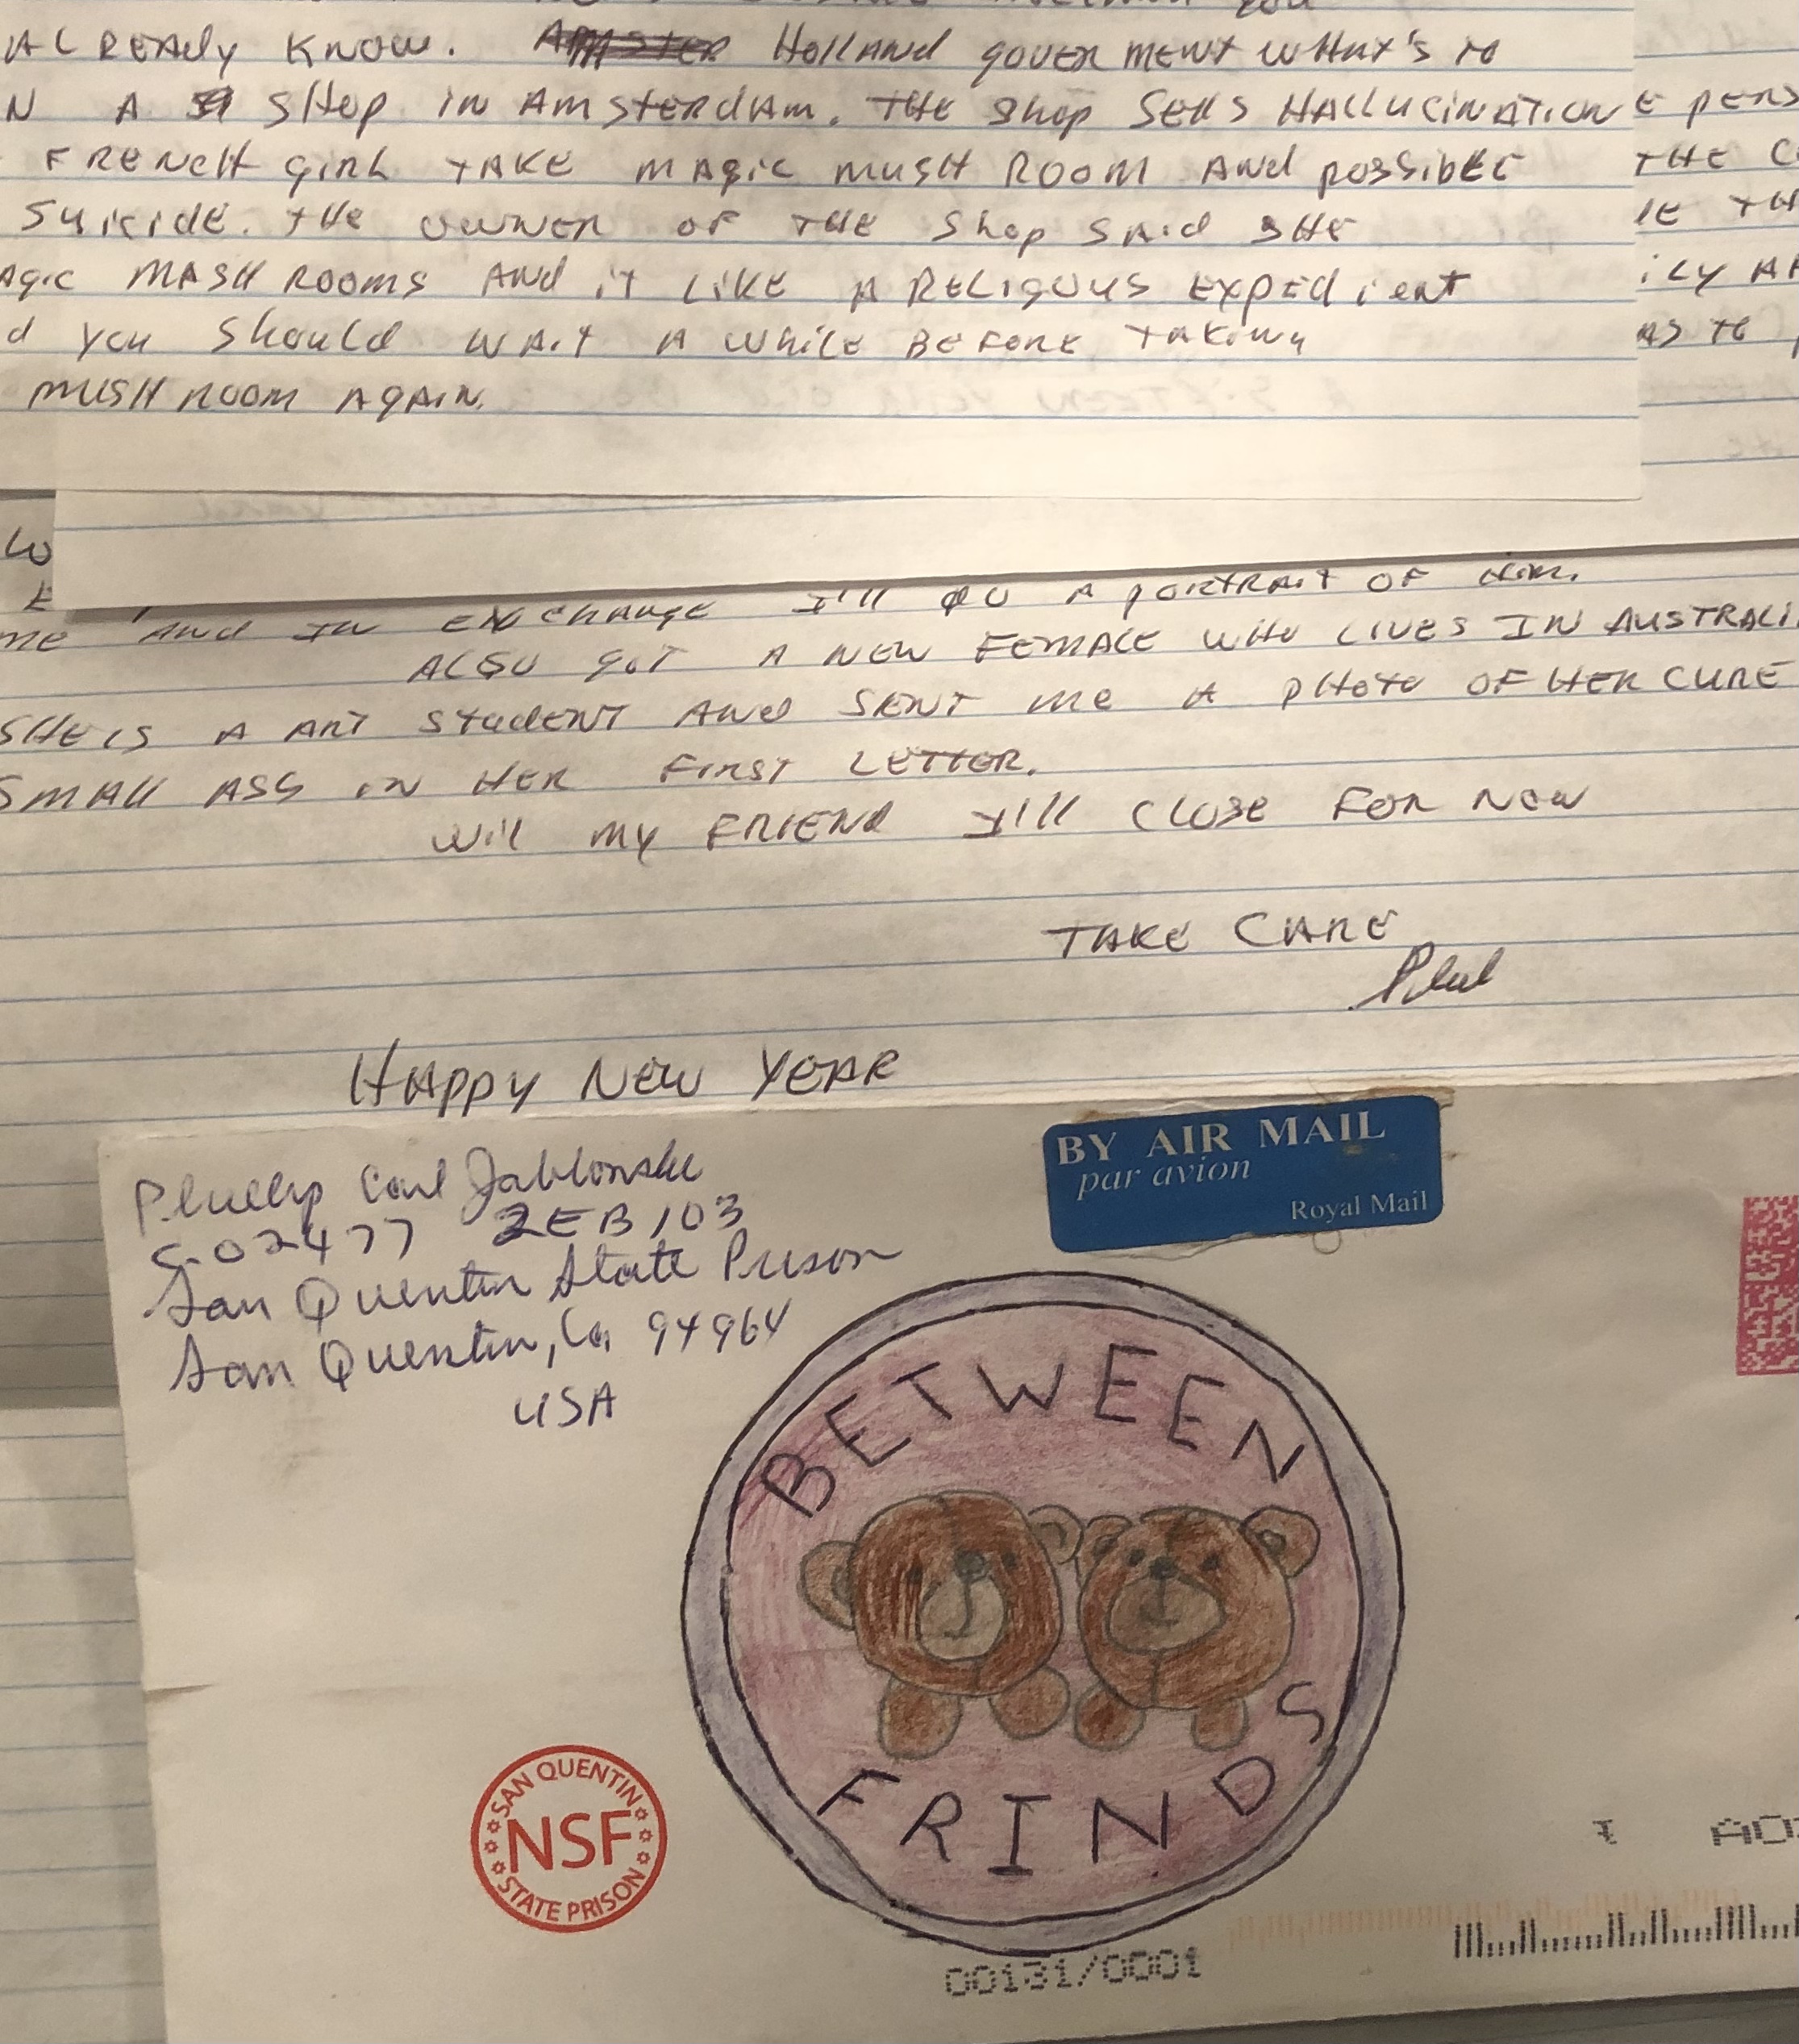 AL READY KNOW. AMSTER HOLLAND GOVER MENT WHAT'S TO
N A SHOP IN AMSTERDAM. THE SHOP SELLS HALLUCINATION
FRENCH GIRL TAKE MAGIC MUSH ROOM AND POSSIBLE
SUICIDE. THE OWNER OF THE SHOP SAID SHE
AGIC MASH ROOMS AND IT LIKE A RELIGOUS EXPEDIENT
d YOU SHOULD WAIT A WHILE BEFORE TAKING
MUSH ROOM AGAIN.
E PERS
THE C
LE TH
ILY AR
AS TO
W
E
ME AND IN EXCHANGE I'll DO A PORTRAIT OF HIM.
ALSO GOT A NEW FEMALE WHO LIVES IN AUSTRALI
SHE IS A ART STUDENT AND SENT ME A PHOTO OF HER CURE
SMALL ASS IN HER FIRST LETTER.
Will MY FRIEND I'll CLOSE FOR NOW
TAKE CARE
Phil
HAPPY NEW YEAR
Phillip Carl Jablonski
C-02477 2EB103
San Quentin State Prison
San Quentin, Ca, 94964
USA
BY AIR MAIL
par avion
Royal Mail
BETWEEN
FRINDS
SAN QUENTIN
NSF
STATE PRISON
00131/0001